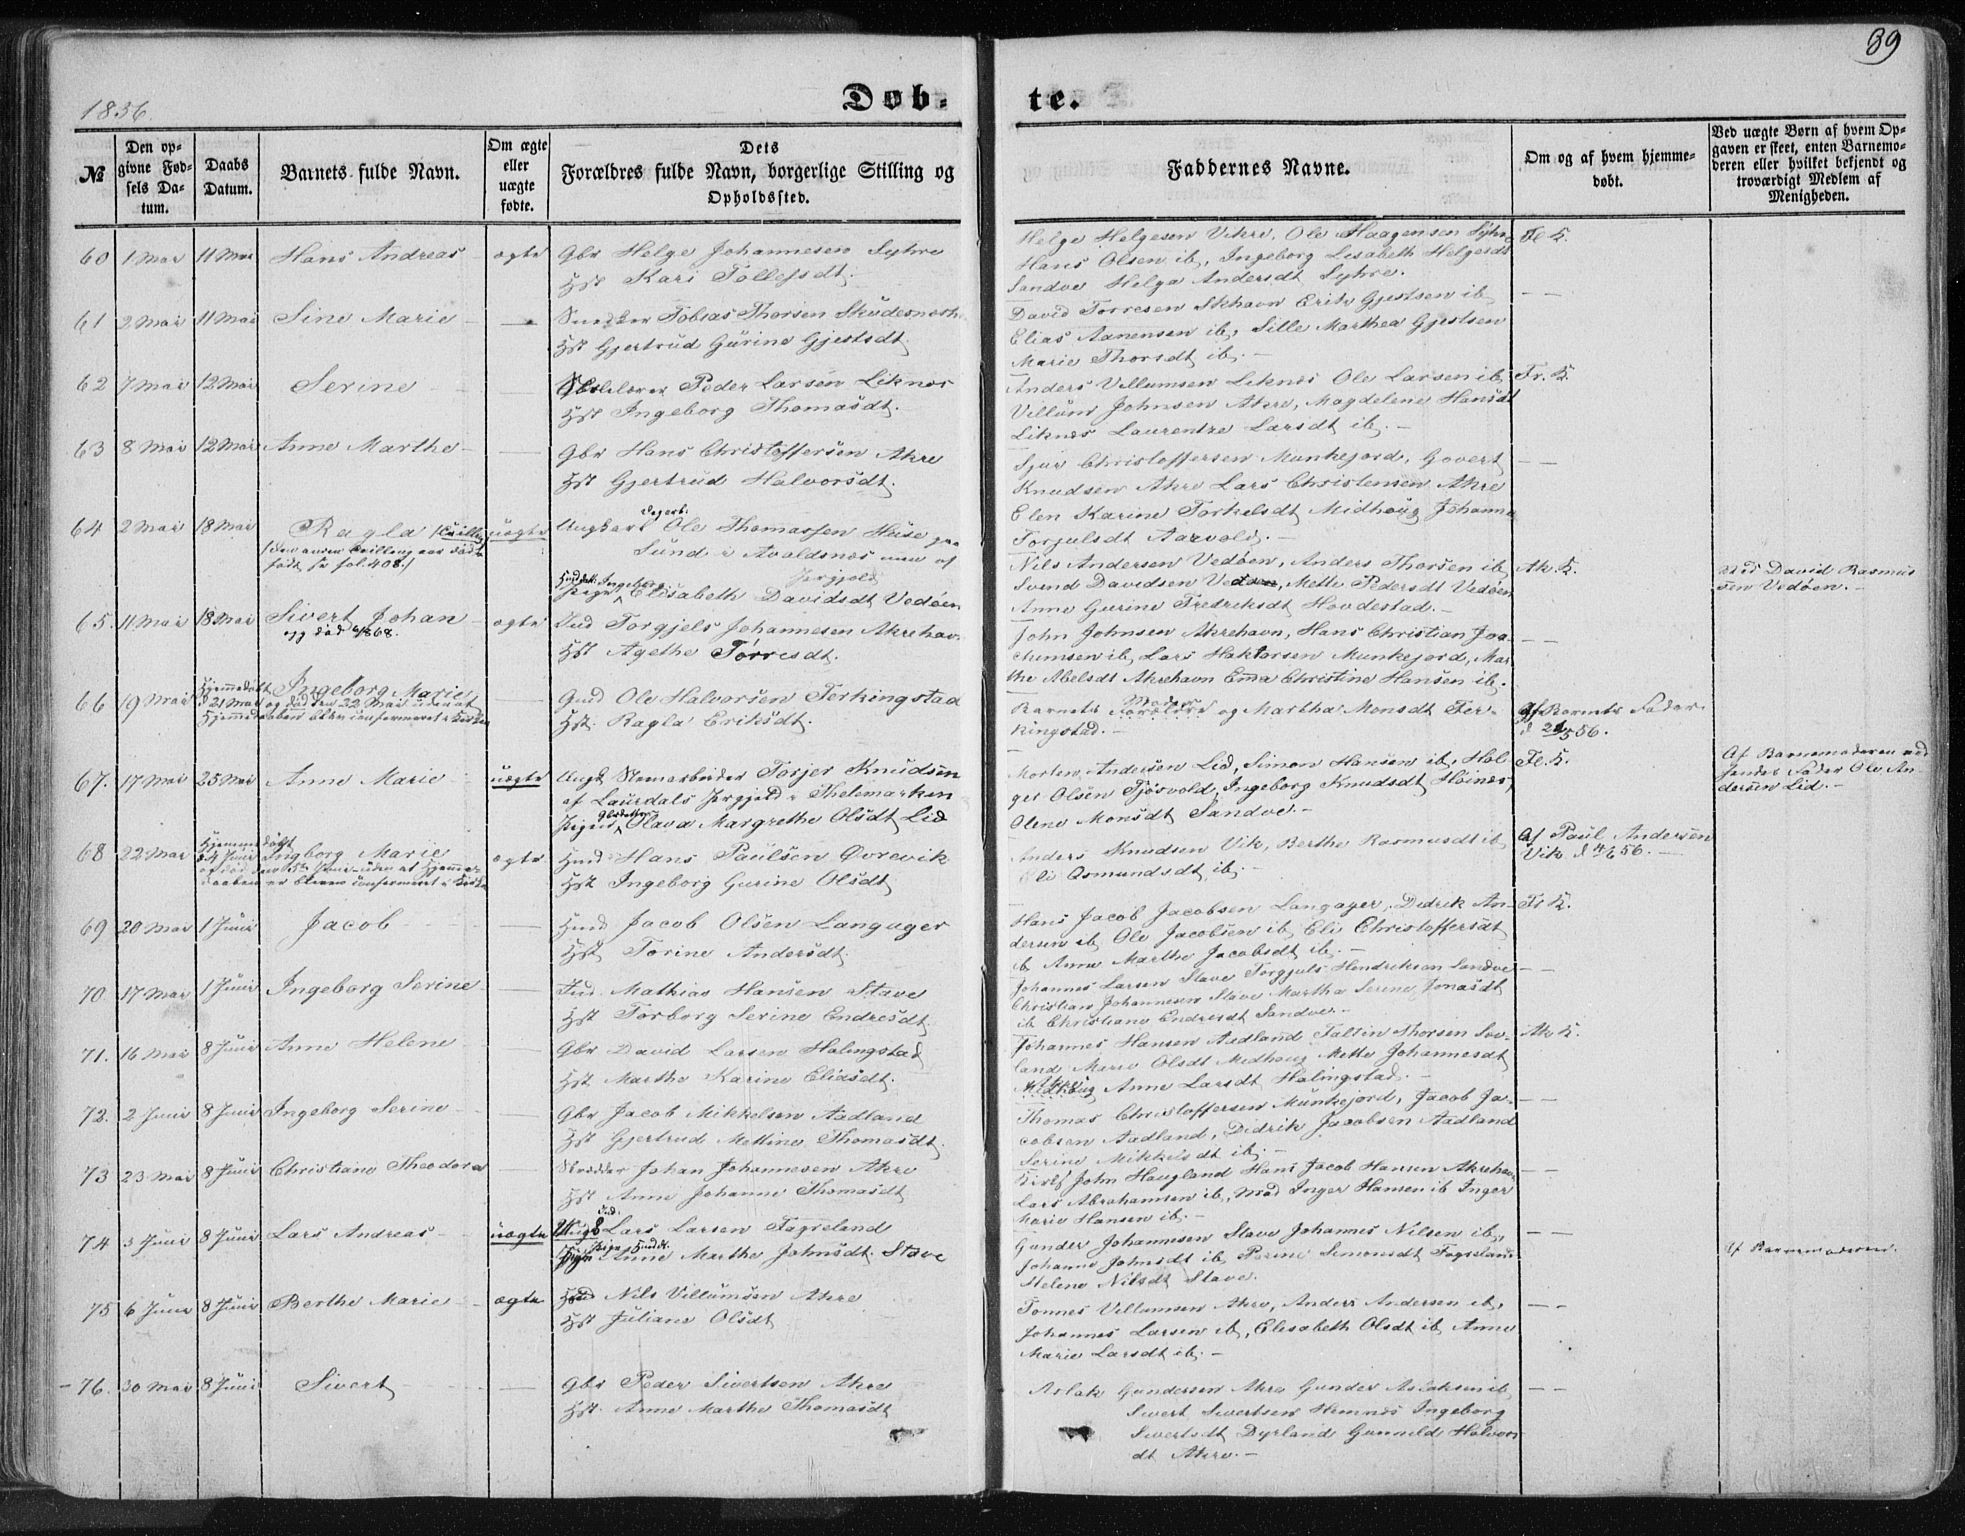 89
1856.
Døb-
te.
№
Den op-
givne Fød-
sels Da-
tum.
Daabs
Datum.
Barnets fulde Navn.
Om ægte
eller
uægte
fødte.
Dets
Forældres fulde Navn, borgerlige Stilling og
Opholdssted.
Faddernes Navne.
Om og af hvem hjemme-
døbt.
Ved uægte Børn af hvem Op-
gaven er skeet, enten Barnemo-
deren eller hvilket bekjendt og
troværdigt Medlem af
Menigheden.
60 1 Mai 11 Mai Hans Andreas ægte Gbr Helge Johannesen Syhre
Hst Kari Tollefsdt.
Helge Helgesen Vikre, Ole Haagensen Syhre
Hans Olsen ib, Ingeborg Lisabeth Helgesdt
Sandve Helga Andersdt Syhre.
Fl. K.
61 2 Mai 11 Mai Sine Marie — Snedker Tobias Thorsen Skudesnæsh
Hst Gjertrud Gurine Gjestsdt.
David Torresen Skhavn Erik Gjestsen ib
Elias Aanensen ib, Sille Marthea Gjestsen
Marie Thorsdt ib. —
— —
62 7 Mai 12 Mai Serine — Peder Larsen Liknes
Hst Ingeborg Thomasdt.
Anders Villumsen Liknes Ole Larsen ib,
Villum Johnsen Akre, Magdelene Hansdt
Liknes Laurentze Larsdt ib. —
Fr. K.
63 8 Mai 12 Mai Anne Marthe — Gbr Hans Christoffersen Akre
Hst Gjertrud Halvorsdt.
Sjur Christoffersen Munkejord, Govert
Knudsen Akre Lars Christensen Akre
Elen Karine Torkelsdt Midhoug Johanna
Torjulsdt Aarvold. —
— —
64 2 Mai 18 Mai Ragla /Tvilling uægte Ungkarl Ole Thomassen Huse paa
/Den anden Tvilling var død-
født se fol. 408./
Sund i Avaldsnes men af
Pige Ingeborg Elisabeth Davidsdt Vedøen
Nils Andersen Vedøen, Anders Thorsen ib
Svend Davidsen Vedøen, Mette Pedersdt Vedøen
Anne Gurine Fredriksdt Hovdestad. —
Ak. K.
Ved David Rasmus
sen Vedøen. —
65. 11 Mai 18 Mai Sivert Johan ægte Ind Torgjels Johannesen Akrehavn
og død 6/8 68.
Hst Agethe Torresdt.
John Johnsen Akrehavn, Hans Christian Joa-
chimsen ib, Lars Haktorsen Munkejord, Mar-
the Abelsdt Akrehavn Ema Christine Hansen ib.
— —
66 19 Mai Hjemmedøbt Ingeborg Marie — Gmd Ole Halvorsen Ferkingstad
d 21 Mai og død den 22 Mai uden at
Hjemmedaaben blev confirmeret i Kirken
Hst. Ragla Eriksdt.
Barnets Moder og Martha Monsdt Fer-
kingstad. —
Af Barnets Fader
d 21/5 56.
67. 17 Mai 25 Mai Anne Marie uægte Ungk Stenarbeider Torjer Knudsen
af Laurdals Prgjeld i Thelemarken
Pigen Olava Margrethe Olsdt Lid
Morten Andersen Lid, Simon Hansen ib, Hol-
ger Olsen Tjøsvold, Ingeborg Knudsdt Høines,
Olene Monsdt Sandve. —
Fl. K.
Af Barnemoderen ved
hendes Fader Ole An
dersen Lid. —
68 22 Mai Hjemmedøbt Ingborg Marie ægte Hmd Hans Paulsen Øvrevik
d 4 Juni
og død den 5te Juni uden at Hjemme-
daaben er bleven confirmeret i Kirken
Hst Ingeborg Gurine Olsdt
Anders Knudsen Vik, Berthe Rasmusdt ib
Eli Osmundsdt ib. —
Af Paul Andersen
Vik d 4/6 56. —
69 20 Mai 1 Juni Jacob — Hmd Jacob Olsen Langager
Hst Torine Andersdt.
Hans Jacob Jacobsen Langager, Didrik An-
dersen ib Ole Jacobsen ib Eli Christoffersdt
ib Anne Marthe Jacobsdt ib. —
Fr K.
70 17 Mai 1 Juni Ingeborg Serine — Ind. Mathias Hansen Stave
Hst Torborg Serine Endresdt.
Johannes Larsen Stave Torgjuls Hendriksen Sandve
Christian Johannesen Stave Martha Serine Jonasdt
ib Christiane Endresdt Sandve. —
— —
71. 16 Mai 8 Juni Anne Helene — Gbr David Larsen Halingstad
Hst Marthe Karine Eliasdt.
Johannes Hansen Aadland Faltin Thorsen Sev-
land Marie Olsdt Medhoug Mette Johannesdt
Anne Larsdt Halingstad. —
Ak K.
72. 2 Juni 8 Juni Ingeborg Serine — Gbr Jacob Mikkelsen Aadland
Hst Gjertrud Mettine Thomasdt.
Thomas Christoffersen Munkejord, Jacob Ja-
cobsen Aadland, Didrik Jacobsen Aadland
Serine Mikkelsdt ib. —
— —
73 23 Mai 8 Juni Christiane Theodora — Skrædder Johan Johannesen Akre
Hst Anne Johanne Thomasdt
John Haugland Hans Jacob Hansen Akrehavn
Lars Abrahamsen ib, Mad Inger Hansen ib Inger
Marie Hansen ib. —
— —
74 3 Juni 8 Juni Lars Andreas uægte Ungk Lars Larsen Fagreland
Pige Anne Marthe Johnsdt Stave
Gunder Johannesen Stave Johannes Nilsen ib,
Johanne Johnsdt ib, Perine Simonsdt Fagreland
Helene Nilsdt Stave.
— —
Af Barnemoderen.
75 6 Juni 8 Juni Berthe Marie ægte Hmd Nils Villumsen Akre
Hst Juliane Olsdt
Tønnes Villumsen Akre, Anders Andersen ib,
Johannes Larsen ib, Elisabeth Olsdt ib, Anne
Marie Larsdt ib. —
— —
76. 30 Mai 8 Juni Sivert — Gbr Peder Sivertsen Akre
Hst. Anne Marthe Thomasdt
Aslak Gundersen Akre Gunder Aslaksen ib,
Sivert Sivertsen Hemnes Ingeborg
Sivertsdt Dyrland Gunnild Halvors
dt Akre. —
— —